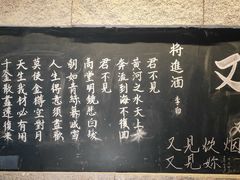 將進酒 李白
君不見
黃河之水天上來
奔流到海不復回
君不見
高堂明鏡悲白髮
朝如青絲暮成雪
人生得意須盡歡
莫使金樽空對月
天生我材必有用
千金散盡還復來
又
又見炊烟
又見妳